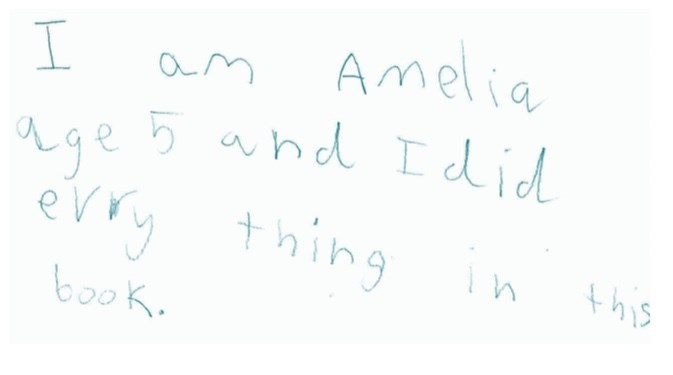 I am Amelia
age 5 and I did
evry thing in this
book.